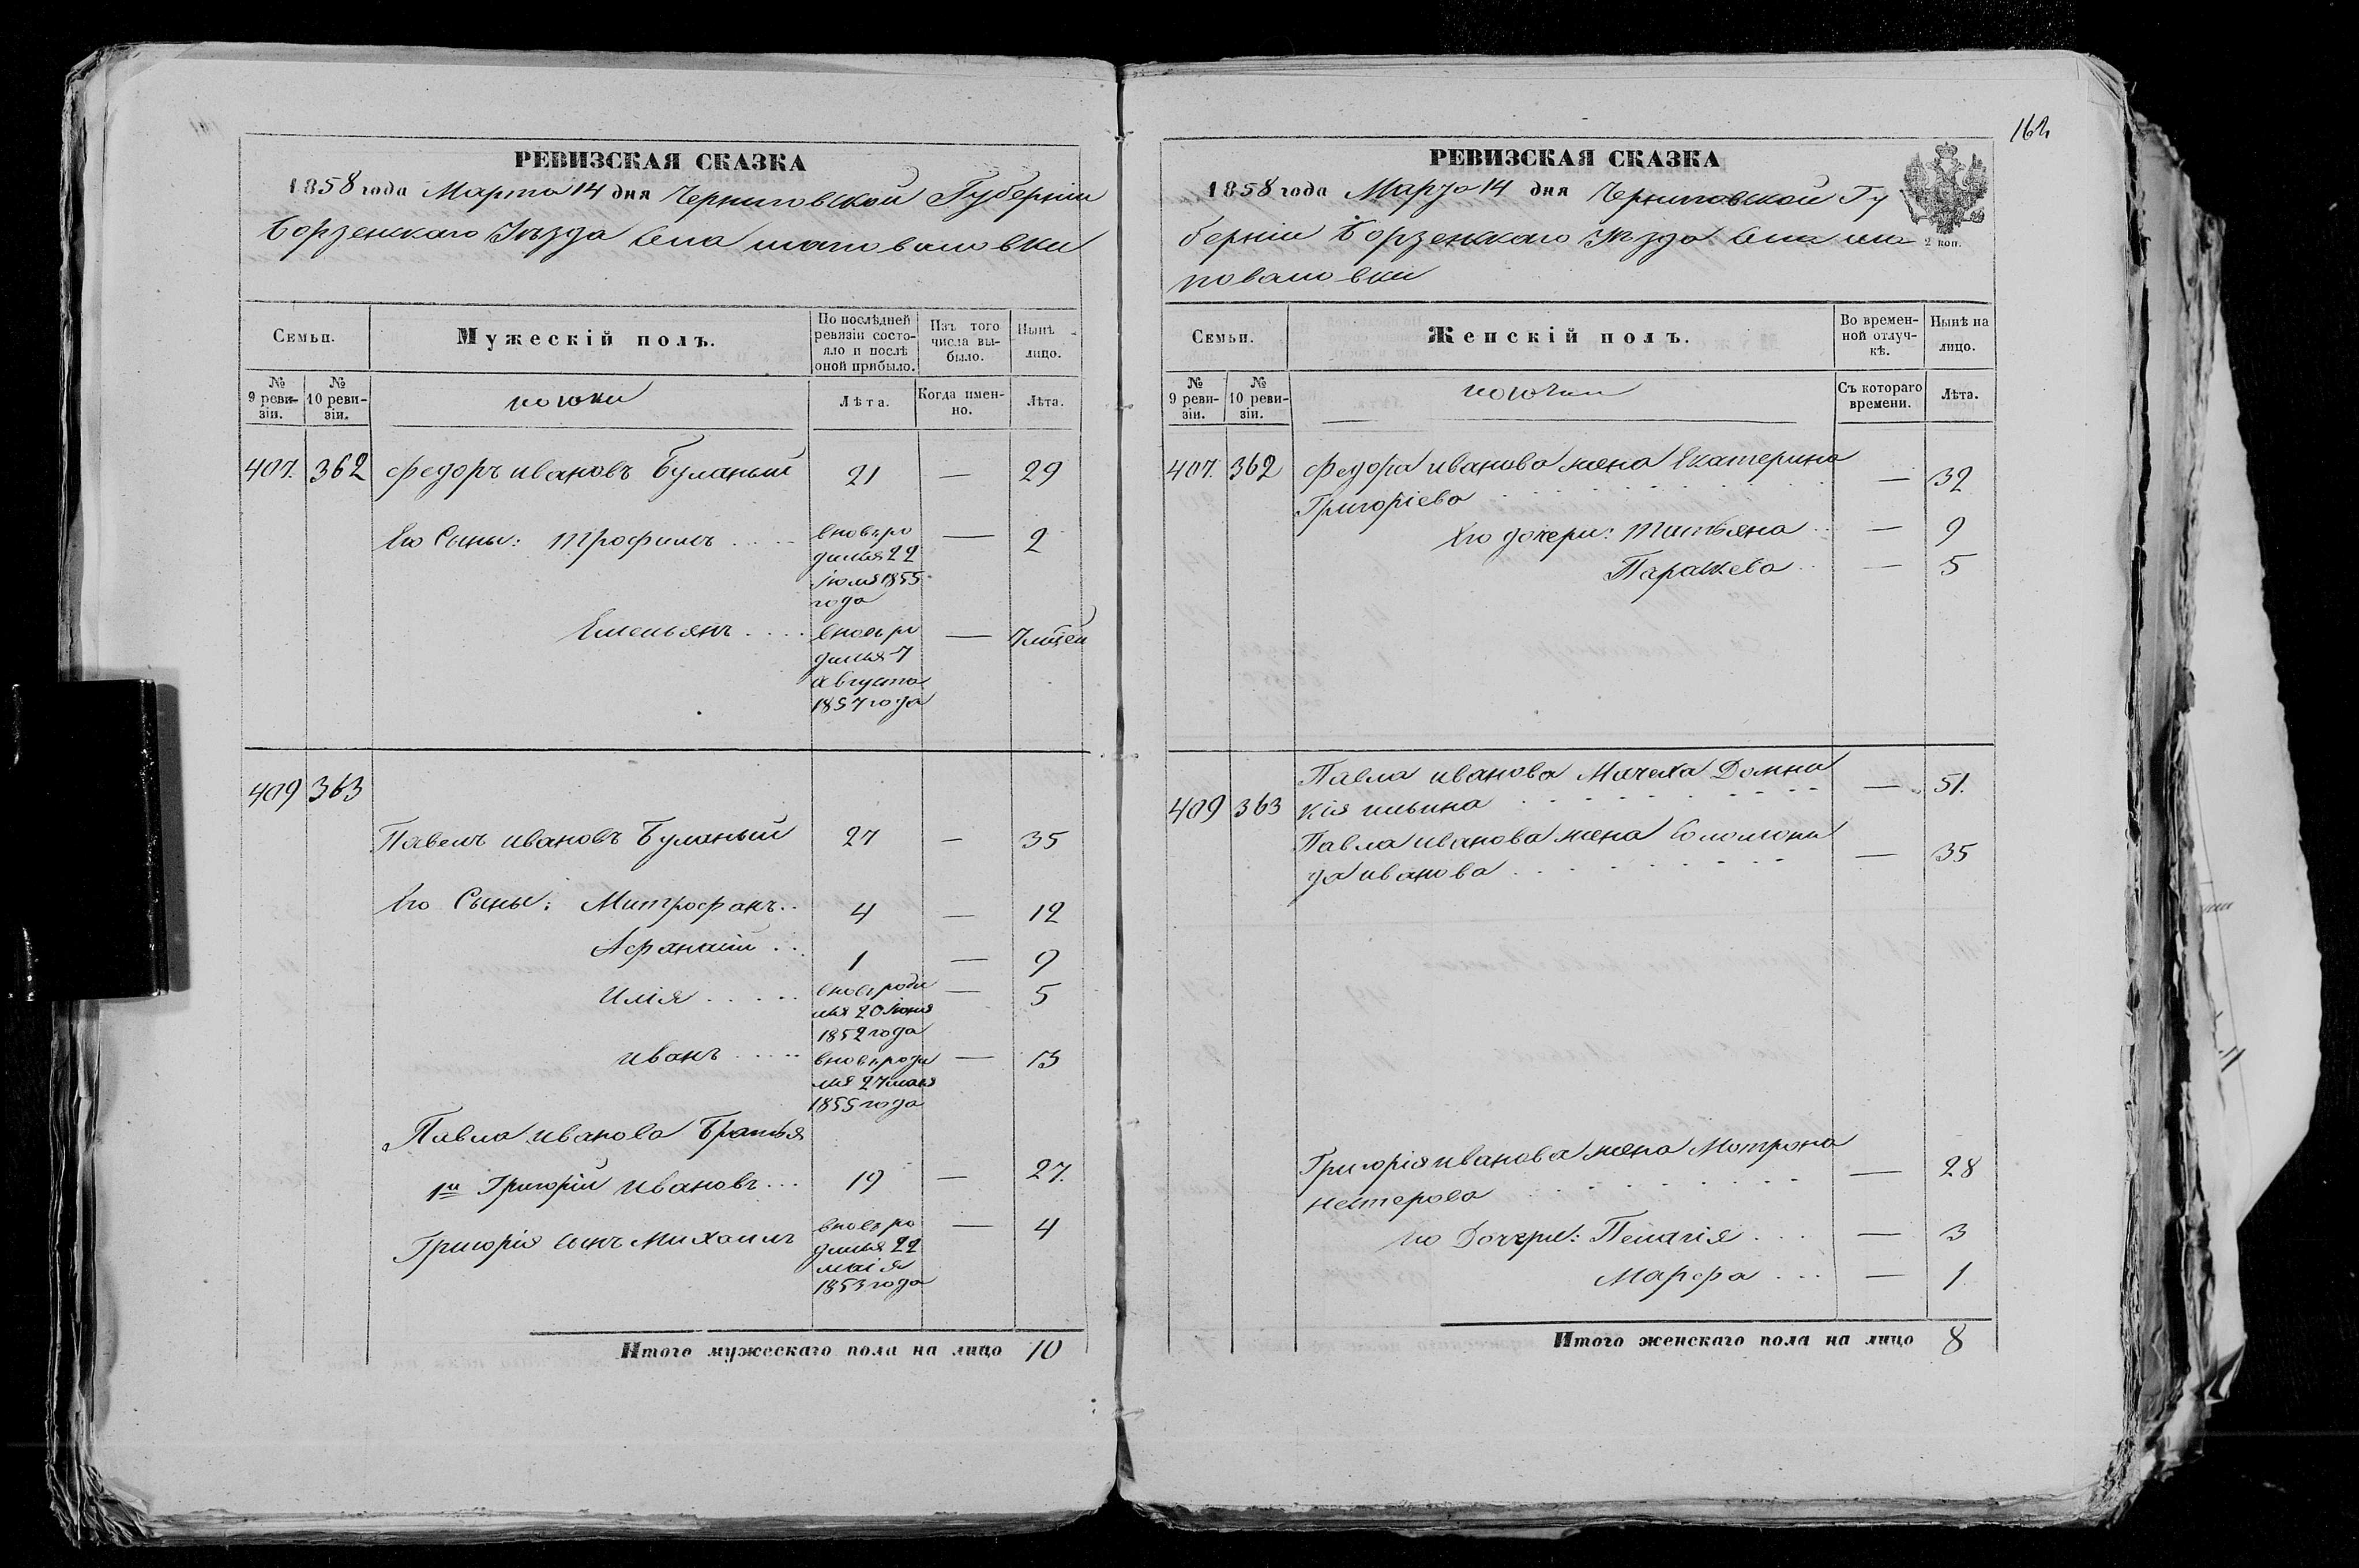 162
РЕВИЗСКАЯ СКАЗКА
1858 года Марта 14 дня Черниговской Губерніи
Борзенскаго Уѣзда Села Шаповаловки
Семьи.
Мужескій полъ.
По послѣдней ревизіи состояло и послѣ оной прибыло.
Изъ того числа выбыло.
Нынѣ на лицо.
№ 9 ревизіи.
№ 10 ревизіи.
Лѣта.
Когда именно.
Лѣта.
407. 362 Федоръ Ивановъ Буланый 21 — 29
Его Сыны: Трофимъ .... вновь ро — 2
дился 22
Іюля 1855
года
Емельянъ .... вновь ро — 7 мѣсец
дился 7
Августа
1857 года
409 363
Павелъ Ивановъ Буланый 27 — 35
Его Сыны: Митрофанъ .. 4 — 12
Афанасій ... 1 — 9
Илія ..... вновь роди — 5
лся 20 Іюня
1852 года
Иванъ ..... вновь роди — 3
лся 27 мая
1855 года
Павла Иванова Братья
1й Григорій Ивановъ ... 19 — 27.
Григорія сынъ Михаилъ вновь ро — 4
дился 22
маія
1853 года
Итого мужескаго пола на лицо 10
РЕВИЗСКАЯ СКАЗКА
1858 года Марта 14 дня Черниговской Гу
берніи Борзенскаго Уѣзда Села Ша
2 коп.
поваловки
Семьи.
Женскій полъ.
Во временной отлучкѣ.
Нынѣ на лицо.
№ 9 ревизіи.
№ 10 ревизіи.
Съ котораго времени.
Лѣта.
407. 362 Федора Иванова жена Екатерина
Григоріева — 32
Его дочери: Татьяна .. — 9
Параскева .. — 5
Павла Иванова Мачеха Домни
409 363 кія Ильина — 51.
Павла Иванова жена Соломони
да Иванова — 35
Григорія Иванова жена Мотрона
Нестерова — 28
Его Дочери: Пелагія ... — 3
Марфа ... — 1
Итого женскаго пола на лицо 8